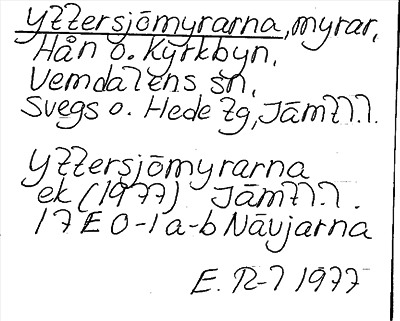 Yttersjömyrarna, myrar,
Hån o. Kyrkbyn,
Vemdalens sn,
Svegs o. Hede tg, Jämtl.
Yttersjömyrarna
ek (1977) Jämtl.
17 E 0-1 a-b Nävjarna
E. R-l 1977